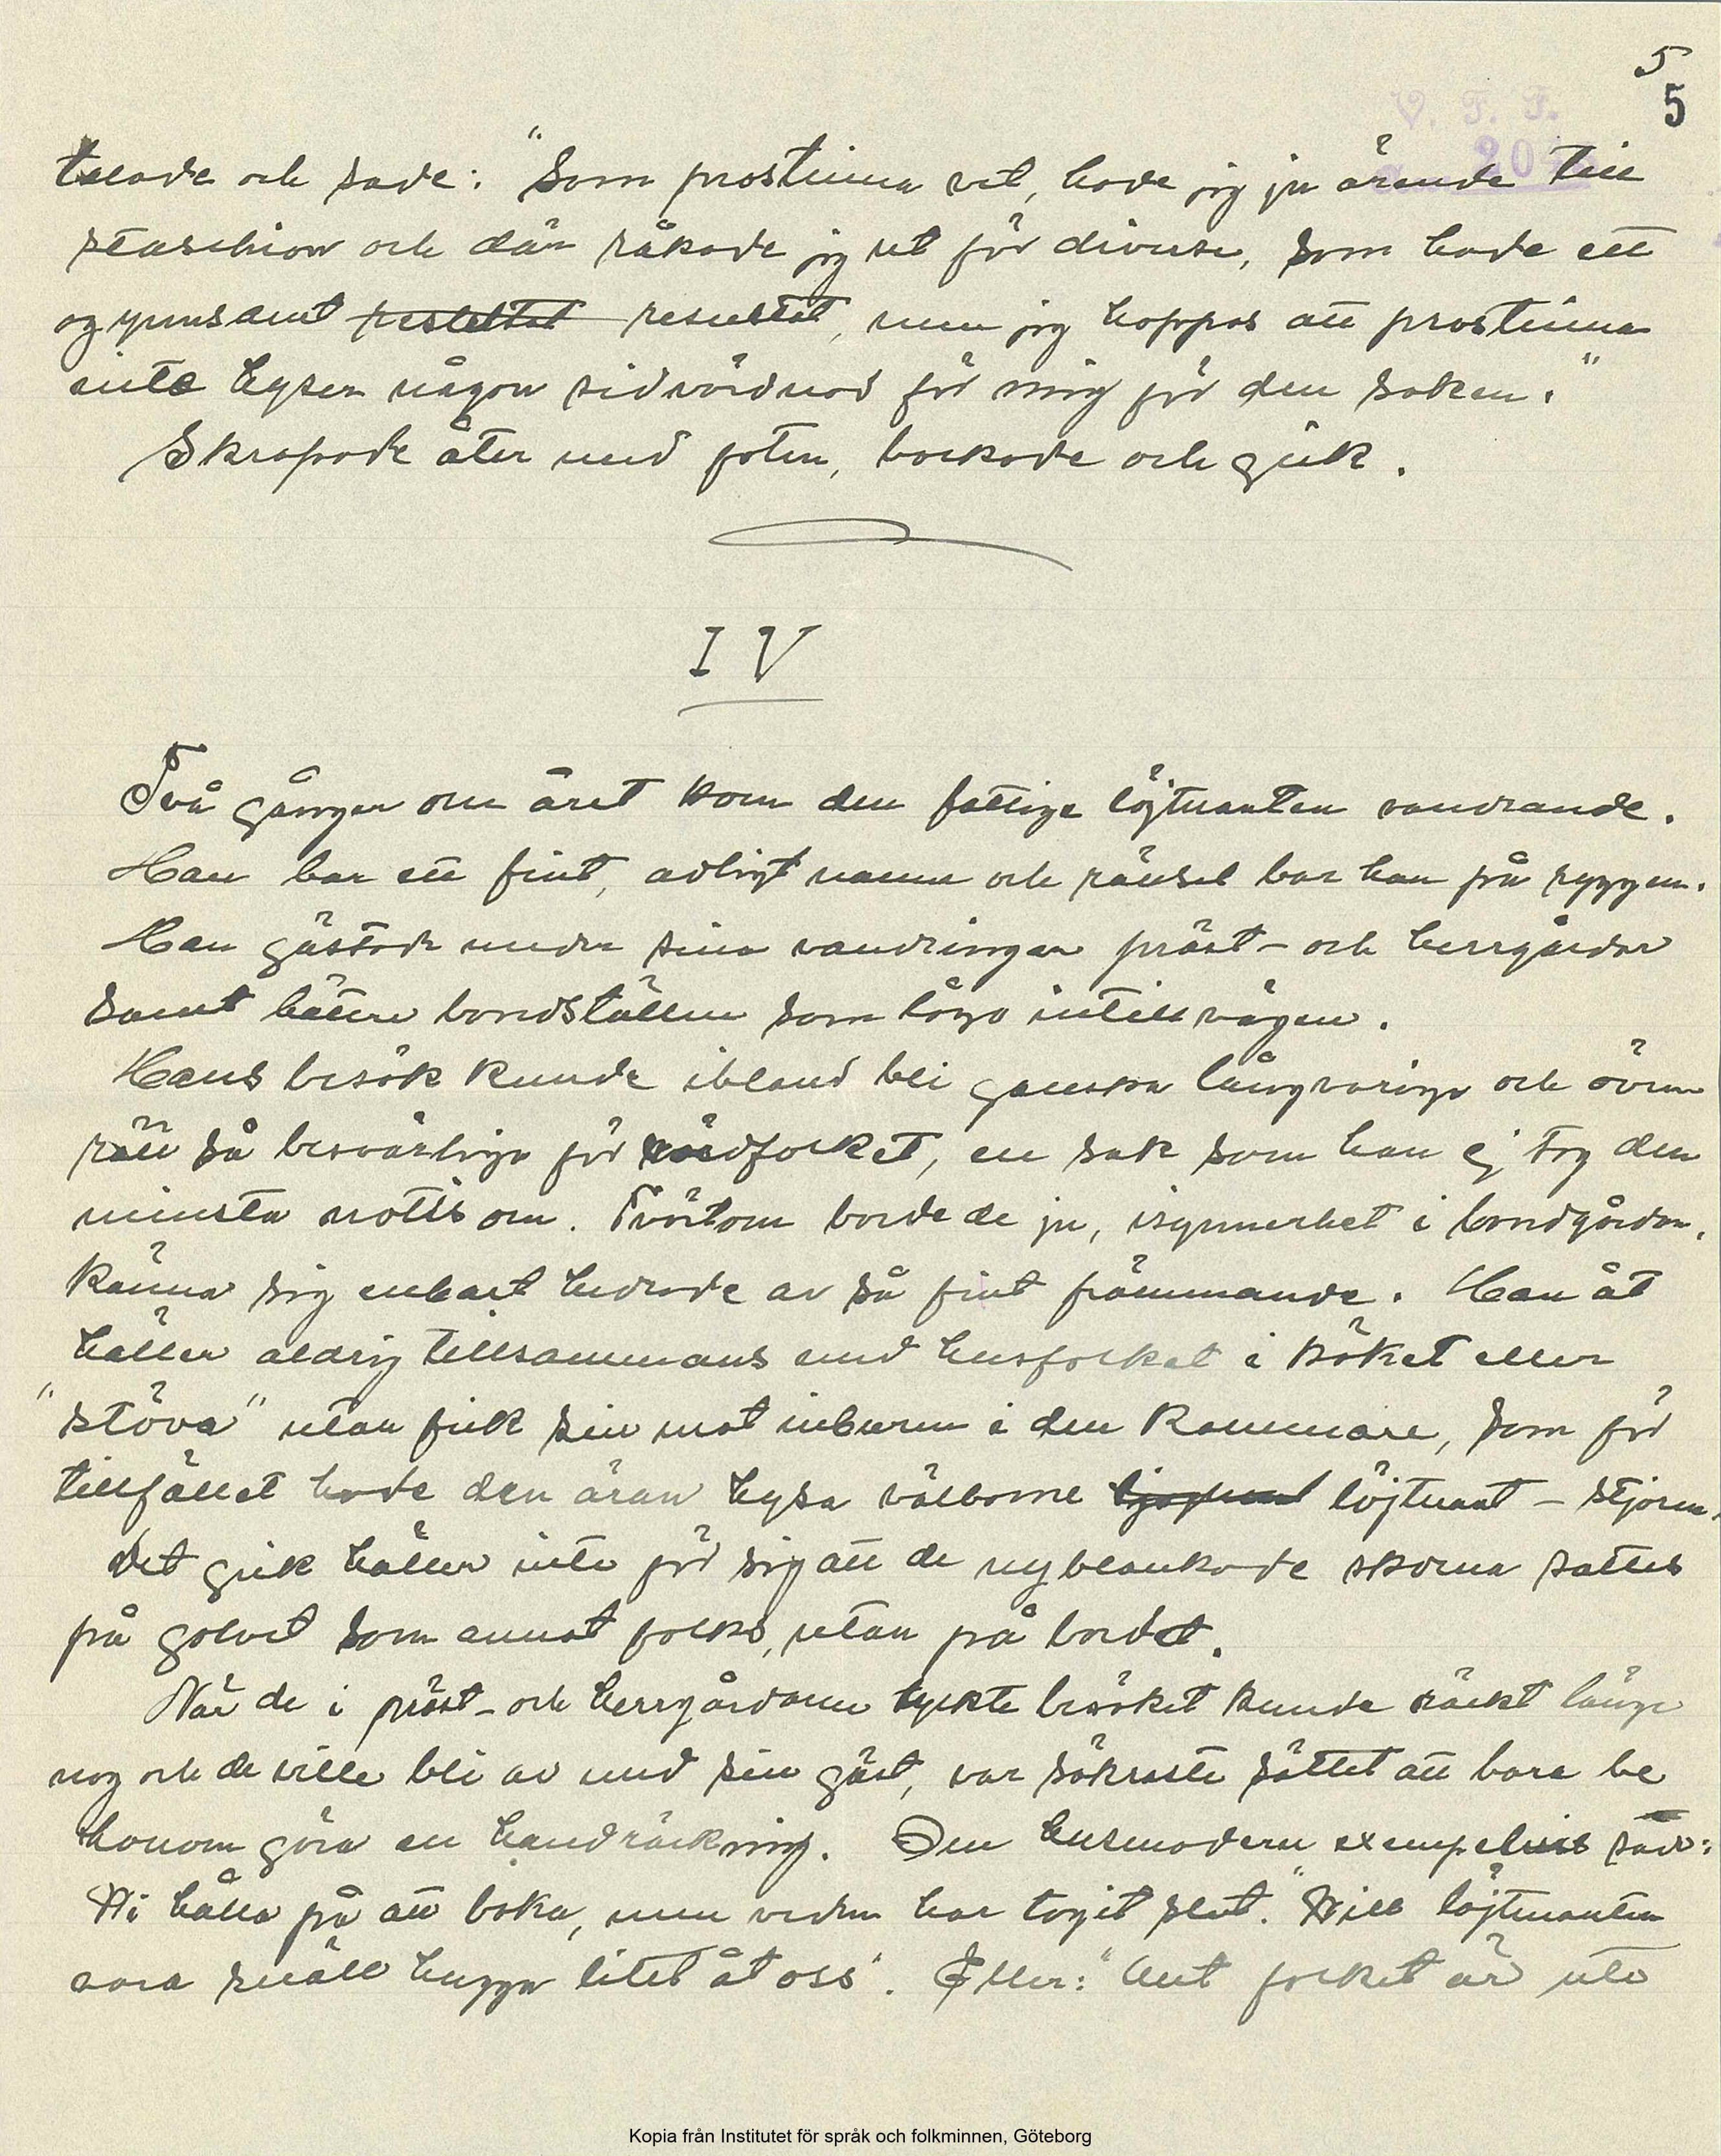 5
5
V. F. F.
talade och sade: "Som prostinna vet, hade jig ju ärende till
staschion och där råkade jig ut för diverse, som hade ett
ogynnsamt resultat, men jig hoppas att prostinna
inte hyser någon vidvördnad för mig för den saken."
Skrapade åter med foten, bockade och gick.
IV
Två gånger om året kom den fattige löjtnanten vandrande.
Han bar ett fint, adligt namn och ränsel bar han på ryggen.
Han gästade under sina vandringar präst- och herrgårdar
samt bättre bondställen som lågo intill vägen.
Hans besök kunde ibland bli ganska långvariga och även
rätt så besvärliga för värdfolket, en sak som han ej tog den
minsta notis om. Tvärtom borde de ju, isynnerhet i bondgårdar,
känna sig enbart hedrade av så fint främmande. Han åt
häller aldrig tillsammans med husfolket i köket eller
"stöva" utan fick sin mat inburen i den kammare, som för
tillfället hade den äran hysa välborne löjtnant – stjärna.
Det gick häller inte för sig att de nyblankade skorna sattes
på golvet som annat folks, utan på bordet.
När de i präst- och herrgårdarne tyckte besöket kunde räckt länge
nog och de ville bli av med sin gäst, var säkraste sättet att bara be
honom göra en handräckning. Om husmodern exempelvis sade:
Vi hålla på att baka, men veden har tagit slut. "Vill löjtnanten
vara snäll hugga litet åt oss". Eller: "Allt folket är ute
Kopia från Institutet för språk och folkminnen, Göteborg